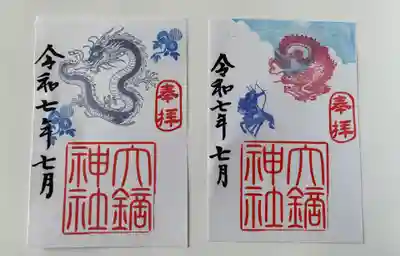 奉拝
大鏑
神社
令和七年 七月
奉拝
大鏑
神社
令和七年 七月